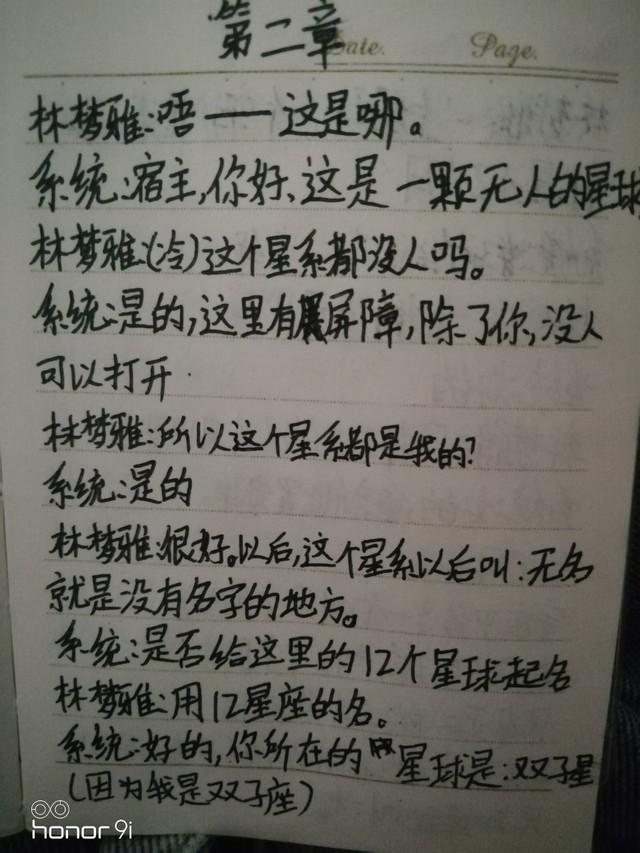 第二章
Date. Page.
林梦雅:唔——这是哪。
系统:宿主,你好、这是一颗无人的星球
林梦雅:(冷)这个星系都没人吗。
系统:是的,这里有屏障,除了你,没人
可以打开.
林梦雅:所以这个星系都是我的?
系统:是的
林梦雅:很好。以后,这个星系以后叫:无名
就是没有名字的地方。
系统:是否给这里的12个星球起名
林梦雅:用12星座的名。
系统:好的,你所在的星球是:双子星
(因为我是双子座)
honor 9i